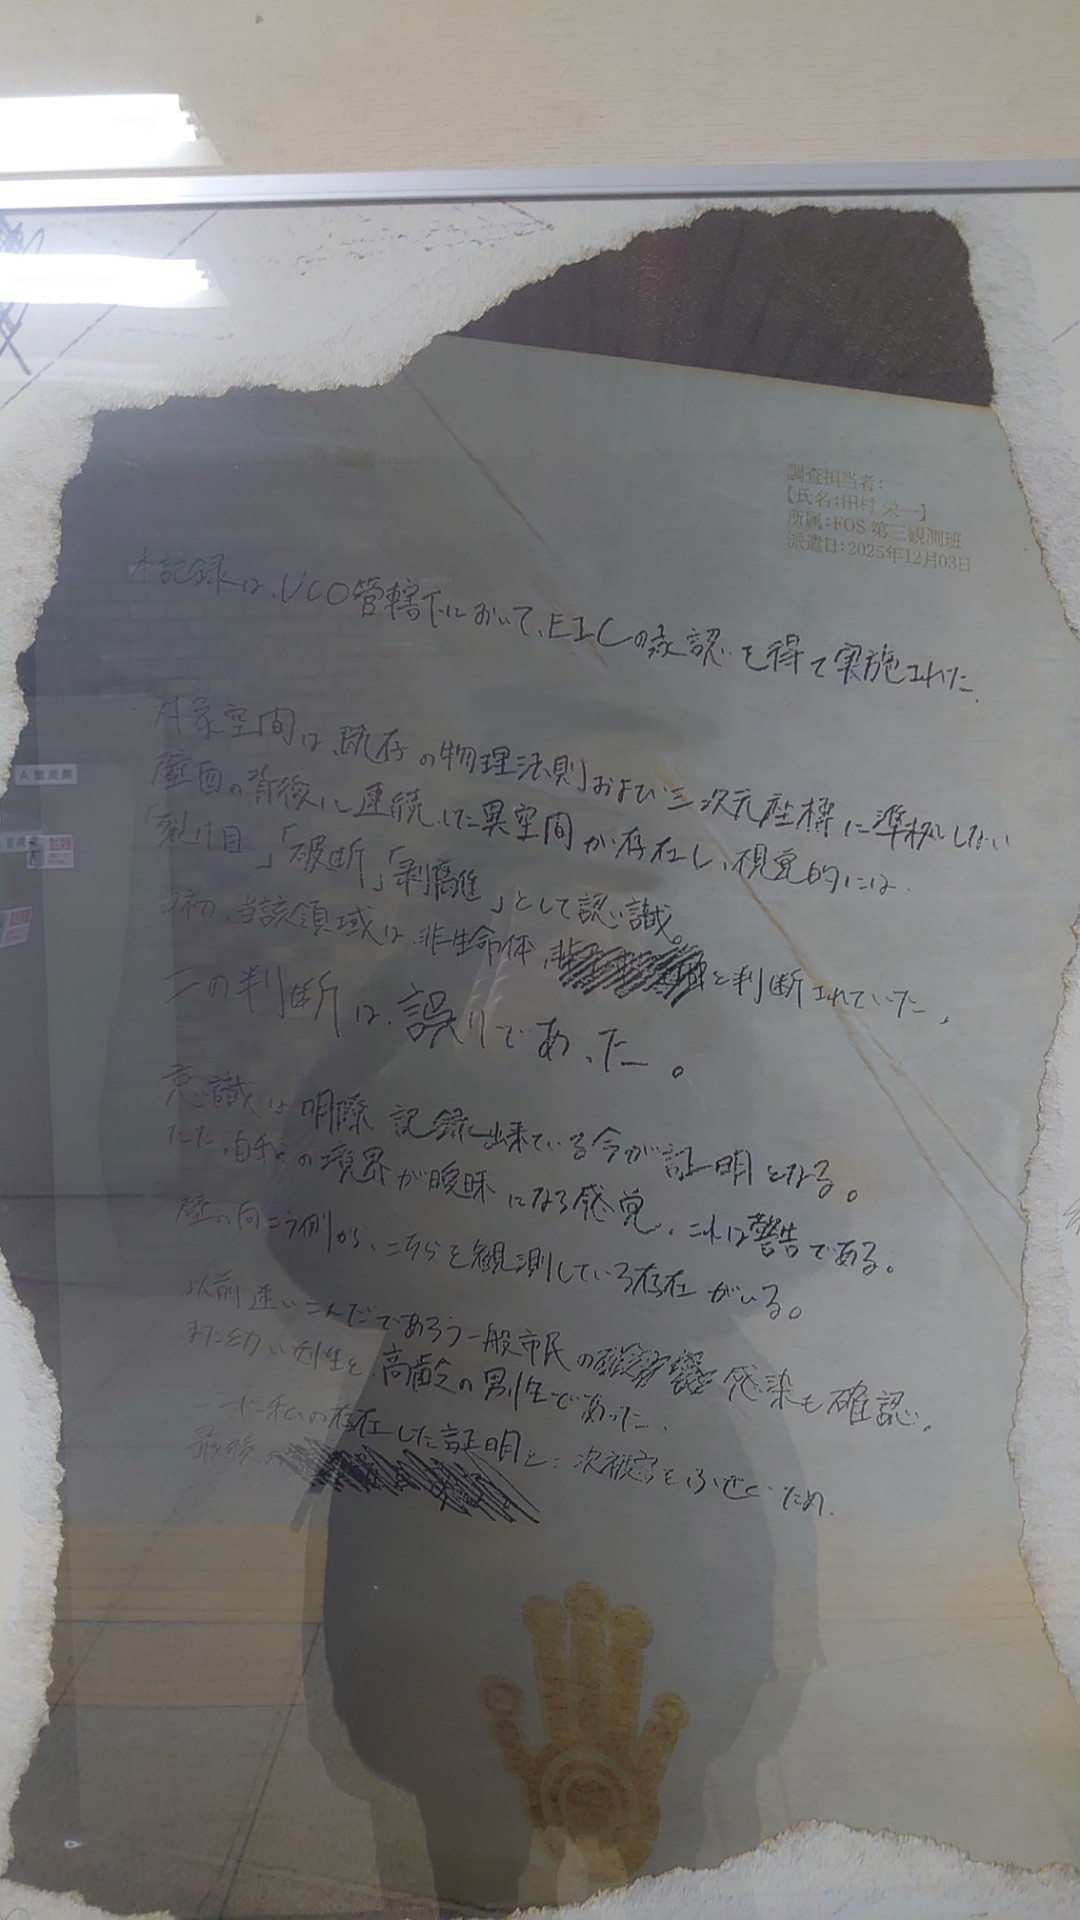 調査担当者:
【氏名:田村 栄一】
所属:FOS 第三観測班
派遣日:2025年12月03日
本記録は、UCO管轄下において、EICの承認を得て実施された。
対象空間は、既存の物理法則および三次元座標に準拠しない
壁面の背後に連続した異空間が存在し、視覚的には、
「裂け目」「破断」「剥離」として認識。
当初、当該領域は、非生命体、と判断されていた。
この判断は、誤りであった。
意識は明瞭 記録出来ている今が証明となる。
ただ、自我の境界が曖昧になる感覚、これは警告である。
壁の向こう側から、こちらを観測している存在がいる。
以前迷いこんだであろう一般市民の感染も確認。
また幼い 高齢の男性であった、
ここに私の存在した証明と二次被害をふせぐため、
最後の